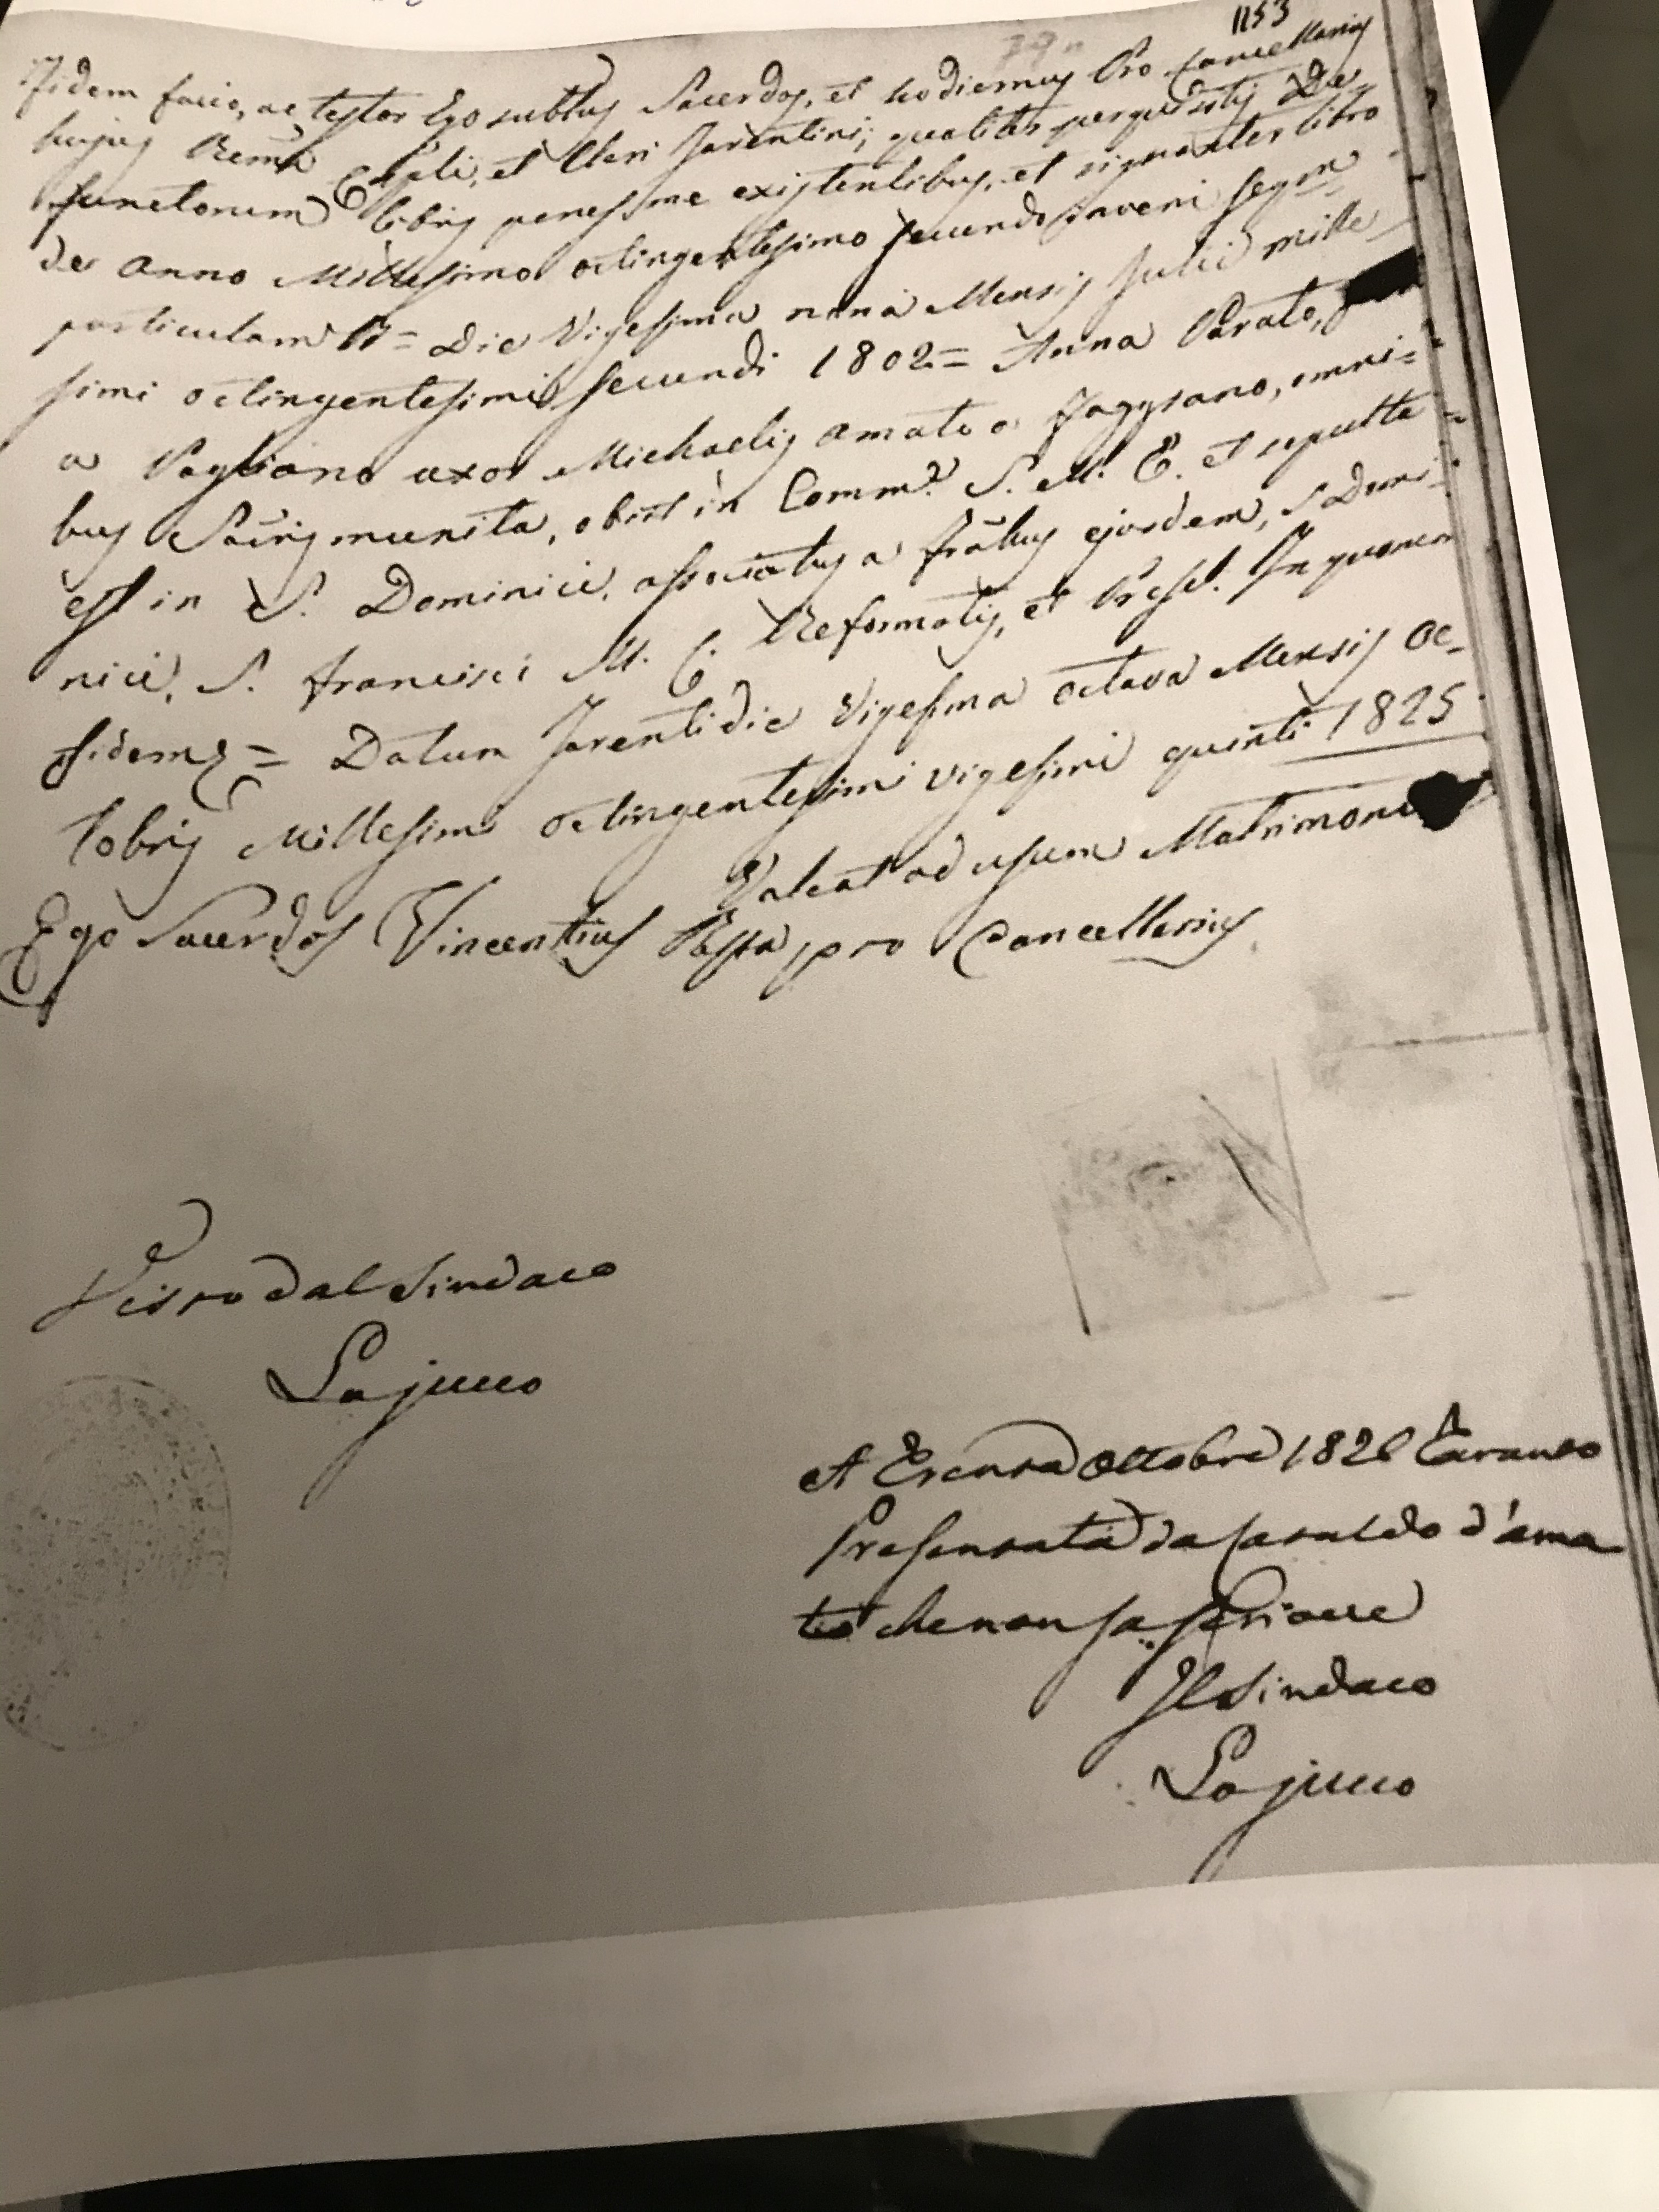 1153
79
Fidem facio, ac testor Ego subttus Sacerdos, et hodiernus Pro Cancellarius
hujus Remi Capli, et Cleri Tarentini, qualiter perquisitis De-
functorum libris penes me existentibus, et signanter libro
de anno Millesimo octingentesimo secundo inveni seqm
particulam V3 = Die Vigesima nona Mensis Julii mille-
simi octingentesimi secundi 1802 = Anna Parato,
a Pagliano uxor Michaelis Amato a Faggiano, omni=
bus Sacris munita, obiit in Comm.e S. M. E. et sepulta
est in S. Dominici, associatus a fratribus ejusdem, S. Domi=
nici, S. Francisci M. C. Reformatis, et Presb. In quorum
fidem = Datum Tarenti die Vigesima octava Mensis Oc-
tobris Millesimi octingentesimi vigesimi quinti 1825
Valeat ad usum Matrimonii
Ego Sacerdos Vincentius Passa, pro Cancellarius
Visto dal Sindaco
Lojucco
A Trenta Ottobre 1826 Taranto
Presentata da Cataldo d'Ama
to che non sa scrivere
Il Sindaco
Lojucco